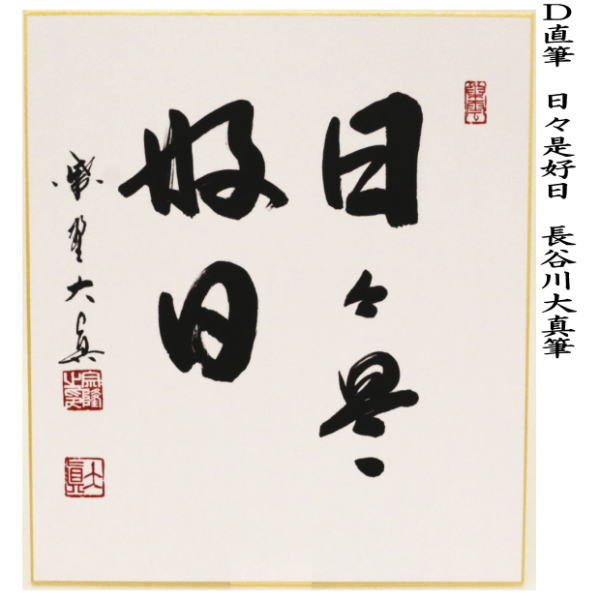 D直筆　日々是好日　長谷川大真筆
日々是
好日
大真